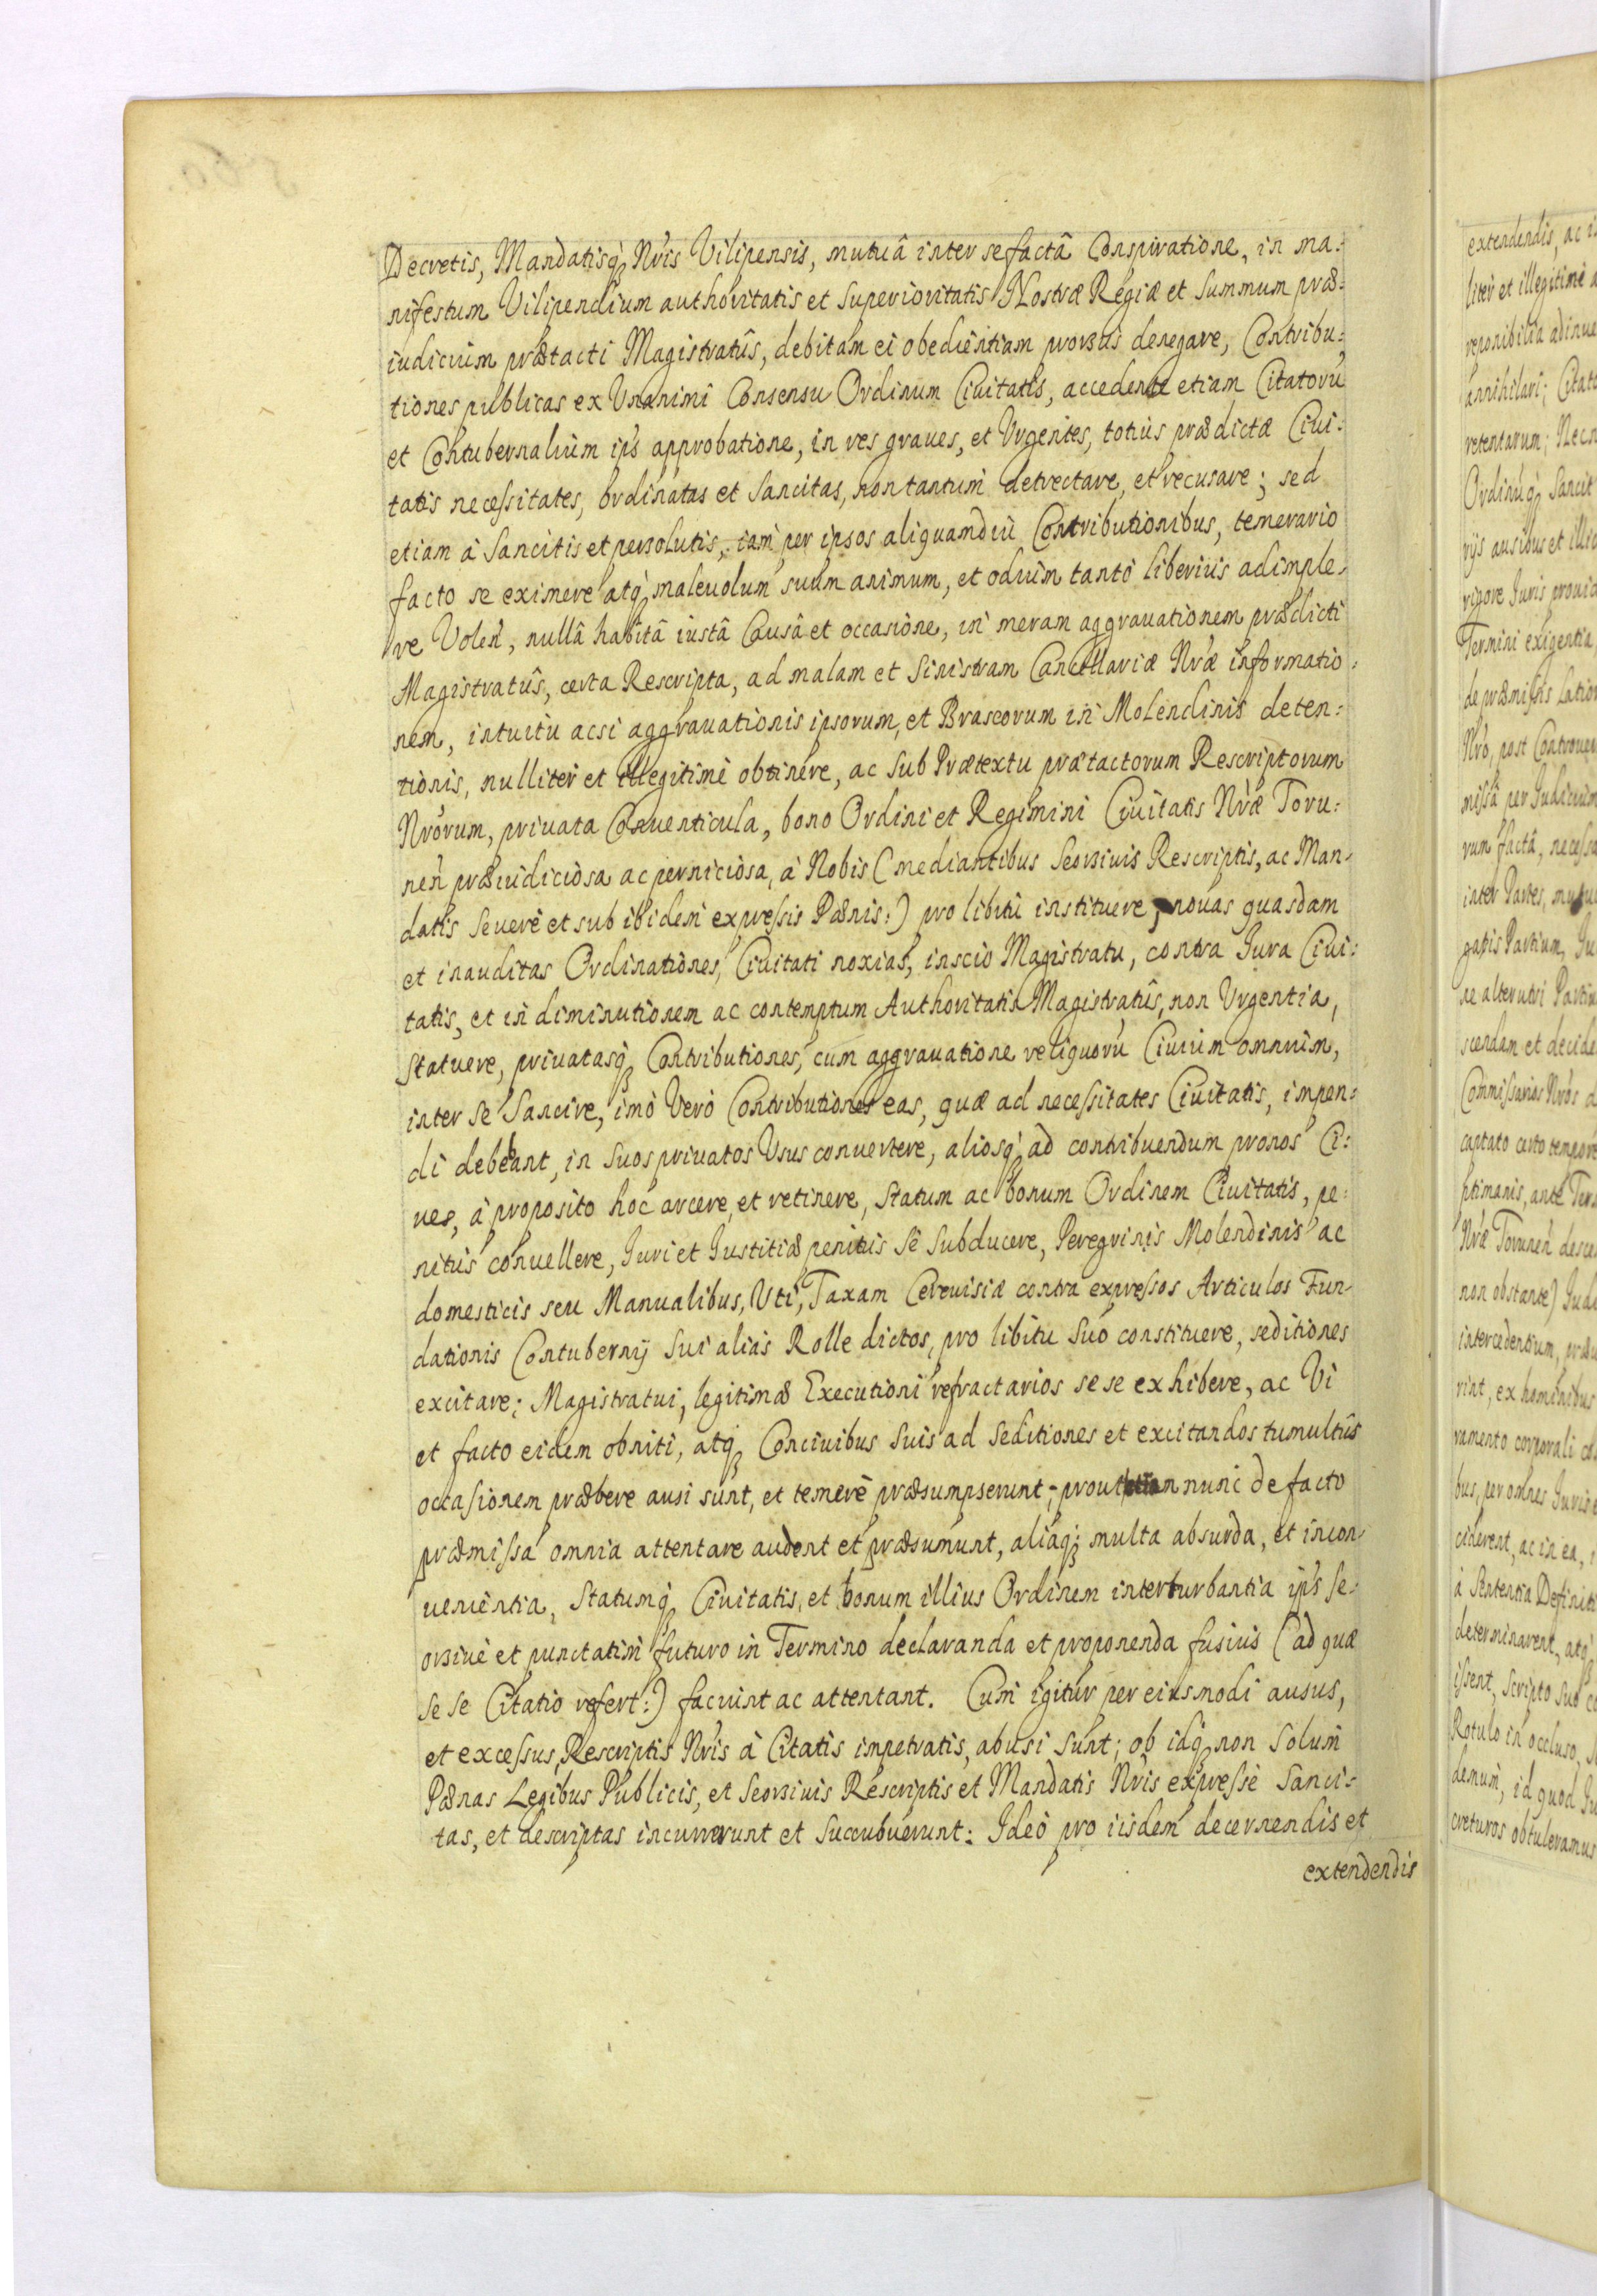 Decretis, Mandatisq; Nris Vilipensis, mutuâ inter se factâ Conspiratione, in ma:
nifestum Vilipendium authoritatis et Superioritatis Nostræ Regiæ et Summum præ:
iudicium prætacti Magistratûs, debitam ei obedientiam prorsus denegare, Contribu:
tiones publicas ex Vnanimi Consensu Ordinum Ciuitatis, accedente etiam Citatorũ
et Contubernalium ips approbatione, in res graues, et Vrgentes, totius prædictæ Ciui:
tatis necessitates, ordinatas et Sancitas, non tantum detrectare, et recusare; sed
etiam à Sancitis et persolutis, iam per ipsos aliquamdiu Contributionibus, temerario
facto se eximere atq; maleuolum suum animum, et odium tantò liberius adimple:
re Volen̄, nullâ habitâ iustâ Causâ et occasione, in meram aggrauationem prædicti
Magistratûs, certa Rescripta, ad malam et Sinistram Cancellariæ Nræ informatio:
nem, intuitu acsi aggrauationis ipsorum, et Brascorum in Molendinis deten:
tionis, nulliter et illegitimè obtinere, ac Sub Prætextu prætactorum Rescriptorum
Nrorum, priuata Conuenticula, bono Ordini et Regimini Ciuitatis Nræ Toru:
nen̄ præiudiciosa ac perniciosa, à Nobis (mediantibus Seorsiuis Rescriptis, ac Man-
datis Seuerè et sub ibidem expressis Pænis:) pro libitu instituere, nouas quasdam
et inauditas Ordinationes, Ciuitati noxias, inscio Magistratu, contra Jura Ciui:
tatis, et in diminutionem ac contemptum Authoritatis Magistratûs, non Vrgentia,
Statuere, priuatasq; Contributiones, cum aggrauatione reliquorũ Ciuium omnium,
inter Se Sancire, imò Verò Contributiones eas, quæ ad necessitates Ciuitatis, impen:
di debebant, in Suos priuatos Vsus conuertere, aliosq; ad contribuendum pronos Ci:
ues, à proposito hoc arcere, et retinere, Statum ac bonum Ordinem Ciuitatis, pe:
nitus conuellere, Juri et Justitiæ penitus Se Subducere, Peregrinis Molendinis ac
domesticis seu Manualibus, Vti, Taxam Cereuisiæ contra expressos Articulos Fun-
dationis Contubernij Sui aliàs Rolle dictos, pro libitu Suo constituere, seditiones
excitare; Magistratui, legitimæ Executioni refractarios sese exhibere, ac Vi
et facto eidem obniti, atq; Conciuibus Suis ad Seditiones et excitandos tumultûs
occasionem præbere ausi sunt, et temerè præsumpserunt; prout etiam nunc de facto
præmissa omnia attentare audent et præsumunt, aliaq; multa absurda, et incon-
uenientia, Statumq; Ciuitatis, et bonum illius Ordinem interturbantia ips Se-
orsiuè et punctatim futuro in Termino declaranda et proponenda fusius (ad quæ
se se Citatio refert:) faciunt ac attentant. Cum igitur per eiusmodi ausus,
et excessus, Rescriptis Nris à Citatis impetratis, abusi Sunt; ob idq; non Solum
Pænas Legibus Publicis, et Seorsiuis Rescriptis et Mandatis Nris expressè Sanci-
tas, et descriptas incurrerunt et Succubuerunt: Ideò pro iisdem decernendis et
extendendis
extendendis, ac
liter et illegitimè
reponibilia
annihilari;
retentarum;
Ordinuq; Sancit
rijs ausibus et
rigore Juris
Termini exigentia
de præmissis
Nro, post
missâ per Judicium
rum factâ,
inter Partes,
gatis Partium,
ne alterutri
scendam et
Commissarios Nros
captato certo tempore
ptimanis, ante
Nræ Torunen̄
non obstante)
intercedentium,
rint, ex hominibus
ramento corporali
bus, per omnes Juris
ciderent, ac in ea,
à Sententia
determinarent, atq;
issent, Scripto Suo
Rotulo in occluso,
demum, id quod
creturos obtuleramus